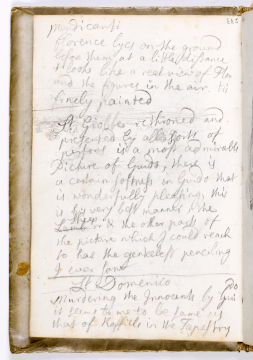 mendicanti
florence lyes on the ground
before them at a little distance
& looks like a real view of Flo
and the figures in the air. tis
finely painted
St. enthroned and
by all sorts of
persons is a most admirable
Picture of Guido, there is
a certain softness in Guido that
is wonderfully pleasing, this
is his very best manner, & the
Sheep
Lamb & the other parts of
the picture which I could reach
to has the genteelest penciling
I ever saw
St Domenico
Murdering the Innocents by Guido
it seems to me to be same as
that of Raffaele in the Tapestry